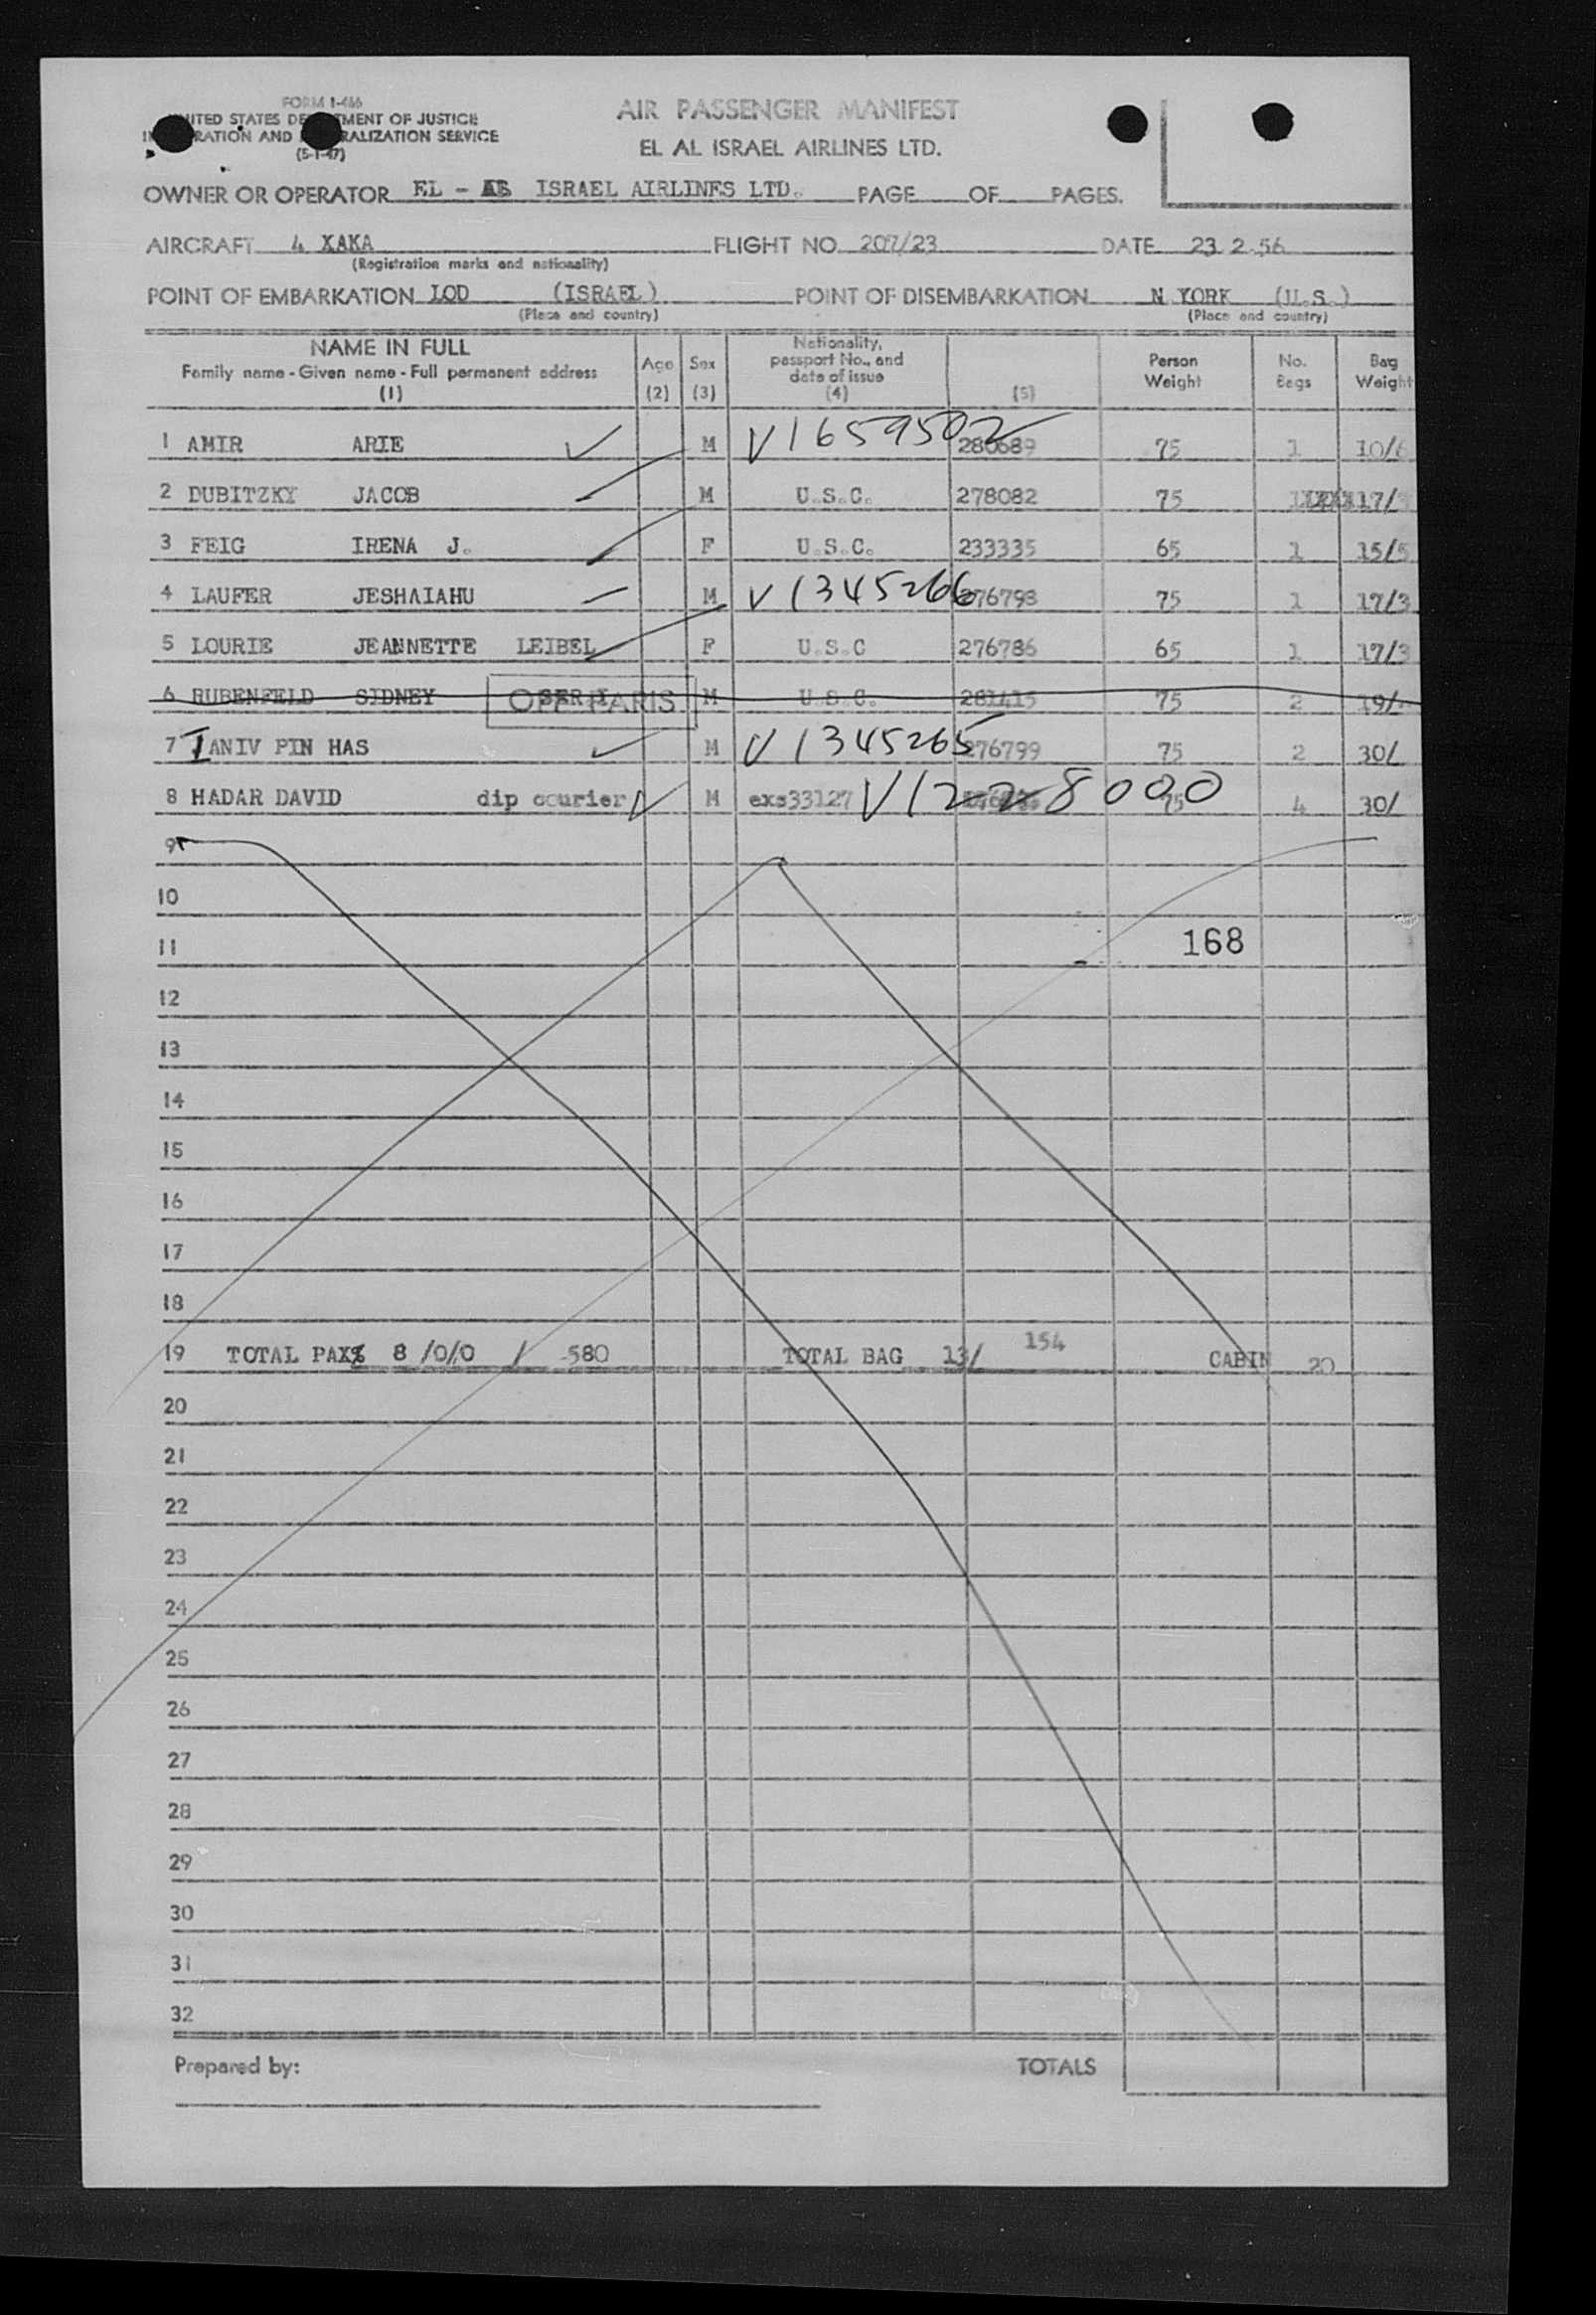 FORM I-466
UNITED STATES DEPARTMENT OF JUSTICE
IMMIGRATION AND NATURALIZATION SERVICE
(5-1-47)
AIR PASSENGER MANIFEST
EL AL ISRAEL AIRLINES LTD.
OWNER OR OPERATOR EL - ISRAEL AIRLINES LTD. PAGE OF PAGES.
AIRCRAFT 4 XAKA FLIGHT NO. 207/23 DATE 23 2.56
(Registration marks and nationality)
POINT OF EMBARKATION LOD (ISRAEL) POINT OF DISEMBARKATION N YORK (U.S.)
(Place and country) (Place and country)
NAME IN FULL Family name - Given name - Full permanent address (1) Age (2) Sex (3) Nationality, passport No., and date of issue (4) (5) Person Weight No. Bags Bag Weight
1 AMIR ARIE M V1659502 280689 75 1 10/6
2 DUBITZKY JACOB M U.S.C. 278082 75 17/3
3 FEIG IRENA J. F U.S.C. 233335 65 1 15/5
4 LAUFER JESHAIAHU M V1345266 276798 75 1 17/3
5 LOURIE JEANNETTE LEIBEL F U.S.C 276786 65 1 17/3
6 RUBENFELD SIDNEY OFF PARIS M U.S.C. 281415 75 2 19/
7 IANIV PIN HAS M V1345265 276799 75 2 30/
8 HADAR DAVID dip courier M exs33127 V1228000 75 4 30/
9
10
11 168
12
13
14
15
16
17
18
19 TOTAL PAX 8 /0/0 / 580 TOTAL BAG 13/ 154 CABIN 20
20
21
22
23
24
25
26
27
28
29
30
31
32
Prepared by: TOTALS